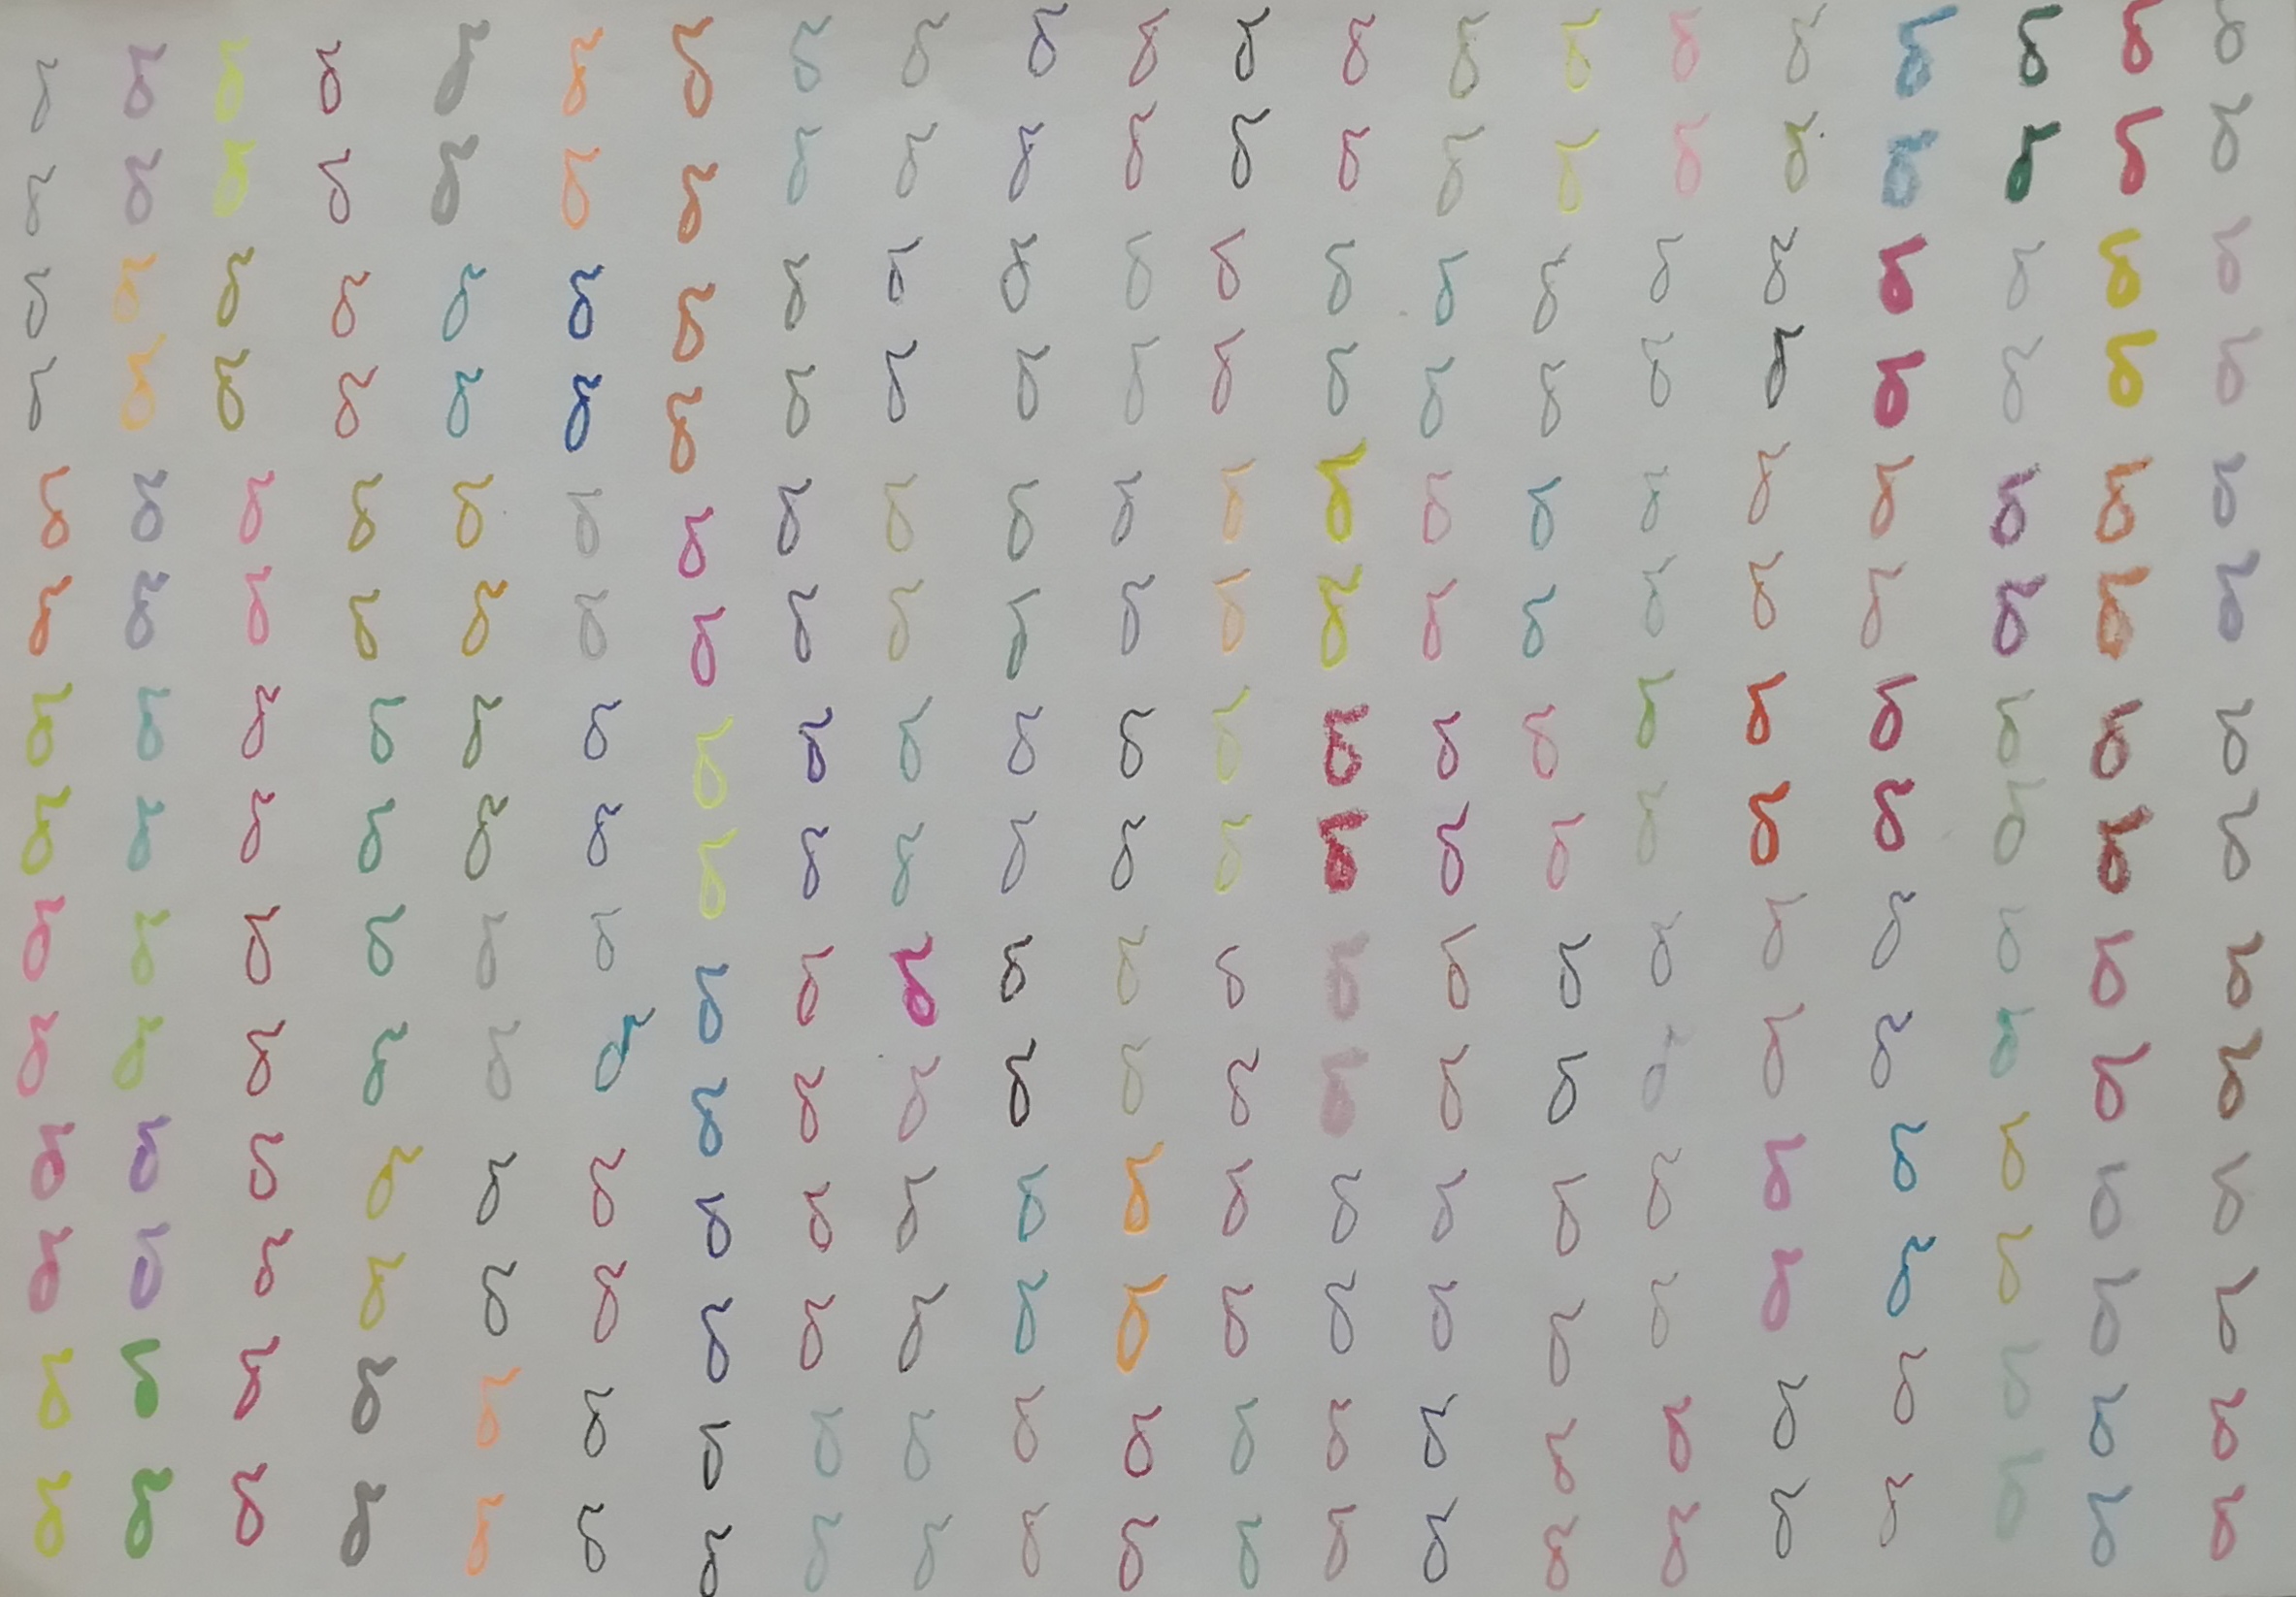 δ δ δ δ δ δ δ δ δ δ δ δ δ δ δ δ δ δ δ δ δ
δ δ δ δ δ δ δ δ δ δ δ δ δ δ δ δ δ δ δ δ δ
δ δ δ δ δ δ δ δ δ δ δ δ δ δ δ δ δ δ δ δ δ
δ δ δ δ δ δ δ δ δ δ δ δ δ δ δ δ δ δ δ δ δ
δ δ δ δ δ δ δ δ δ δ δ δ δ δ δ δ δ δ δ δ δ
δ δ δ δ δ δ δ δ δ δ δ δ δ δ δ δ δ δ δ δ δ
δ δ δ δ δ δ δ δ δ δ δ δ δ δ δ δ δ δ δ δ δ
δ δ δ δ δ δ δ δ δ δ δ δ δ δ δ δ δ δ δ δ δ
δ δ δ δ δ δ δ δ δ δ δ δ δ δ δ δ δ δ δ δ δ
δ δ δ δ δ δ δ δ δ δ δ δ δ δ δ δ δ δ δ δ δ
δ δ δ δ δ δ δ δ δ δ δ δ δ δ δ δ δ δ δ δ δ
δ δ δ δ δ δ δ δ δ δ δ δ δ δ δ δ δ δ δ δ δ
δ δ δ δ δ δ δ δ δ δ δ δ δ δ δ δ δ δ δ δ δ
δ δ δ δ δ δ δ δ δ δ δ δ δ δ δ δ δ δ δ δ δ